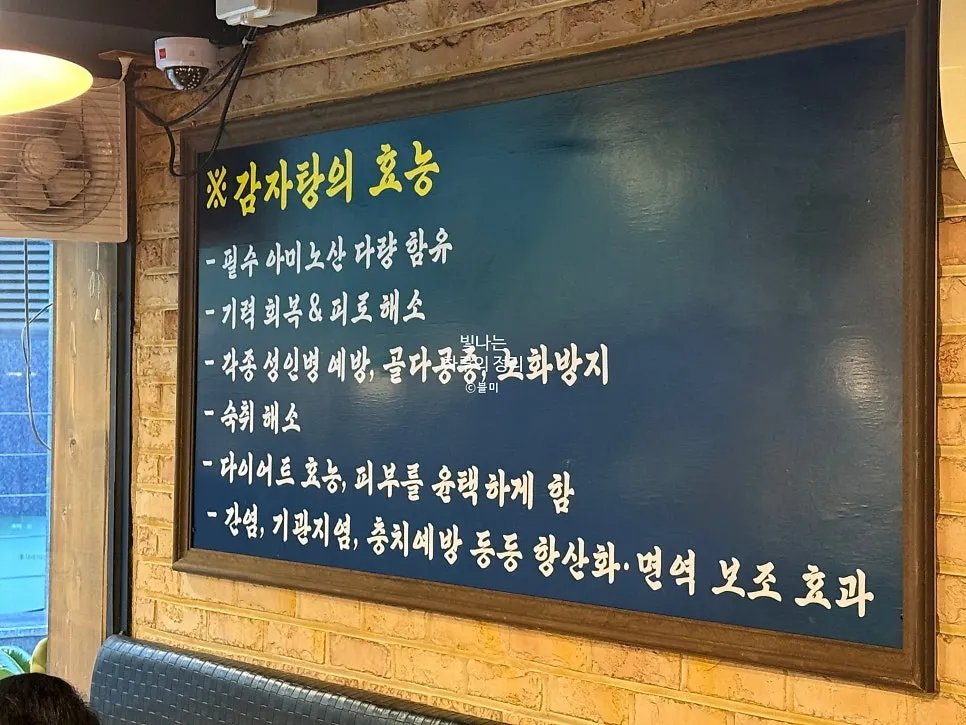 ※감자탕의 효능
- 필수 아미노산 다량 함유
- 기력 회복 & 피로 해소
- 각종 성인병 예방, 골다공증, 노화방지
- 숙취 해소
- 다이어트 효능, 피부를 윤택하게 함
- 간염, 기관지염, 충치예방 등등 항산화·면역 보조 효과
빛나는
©블미